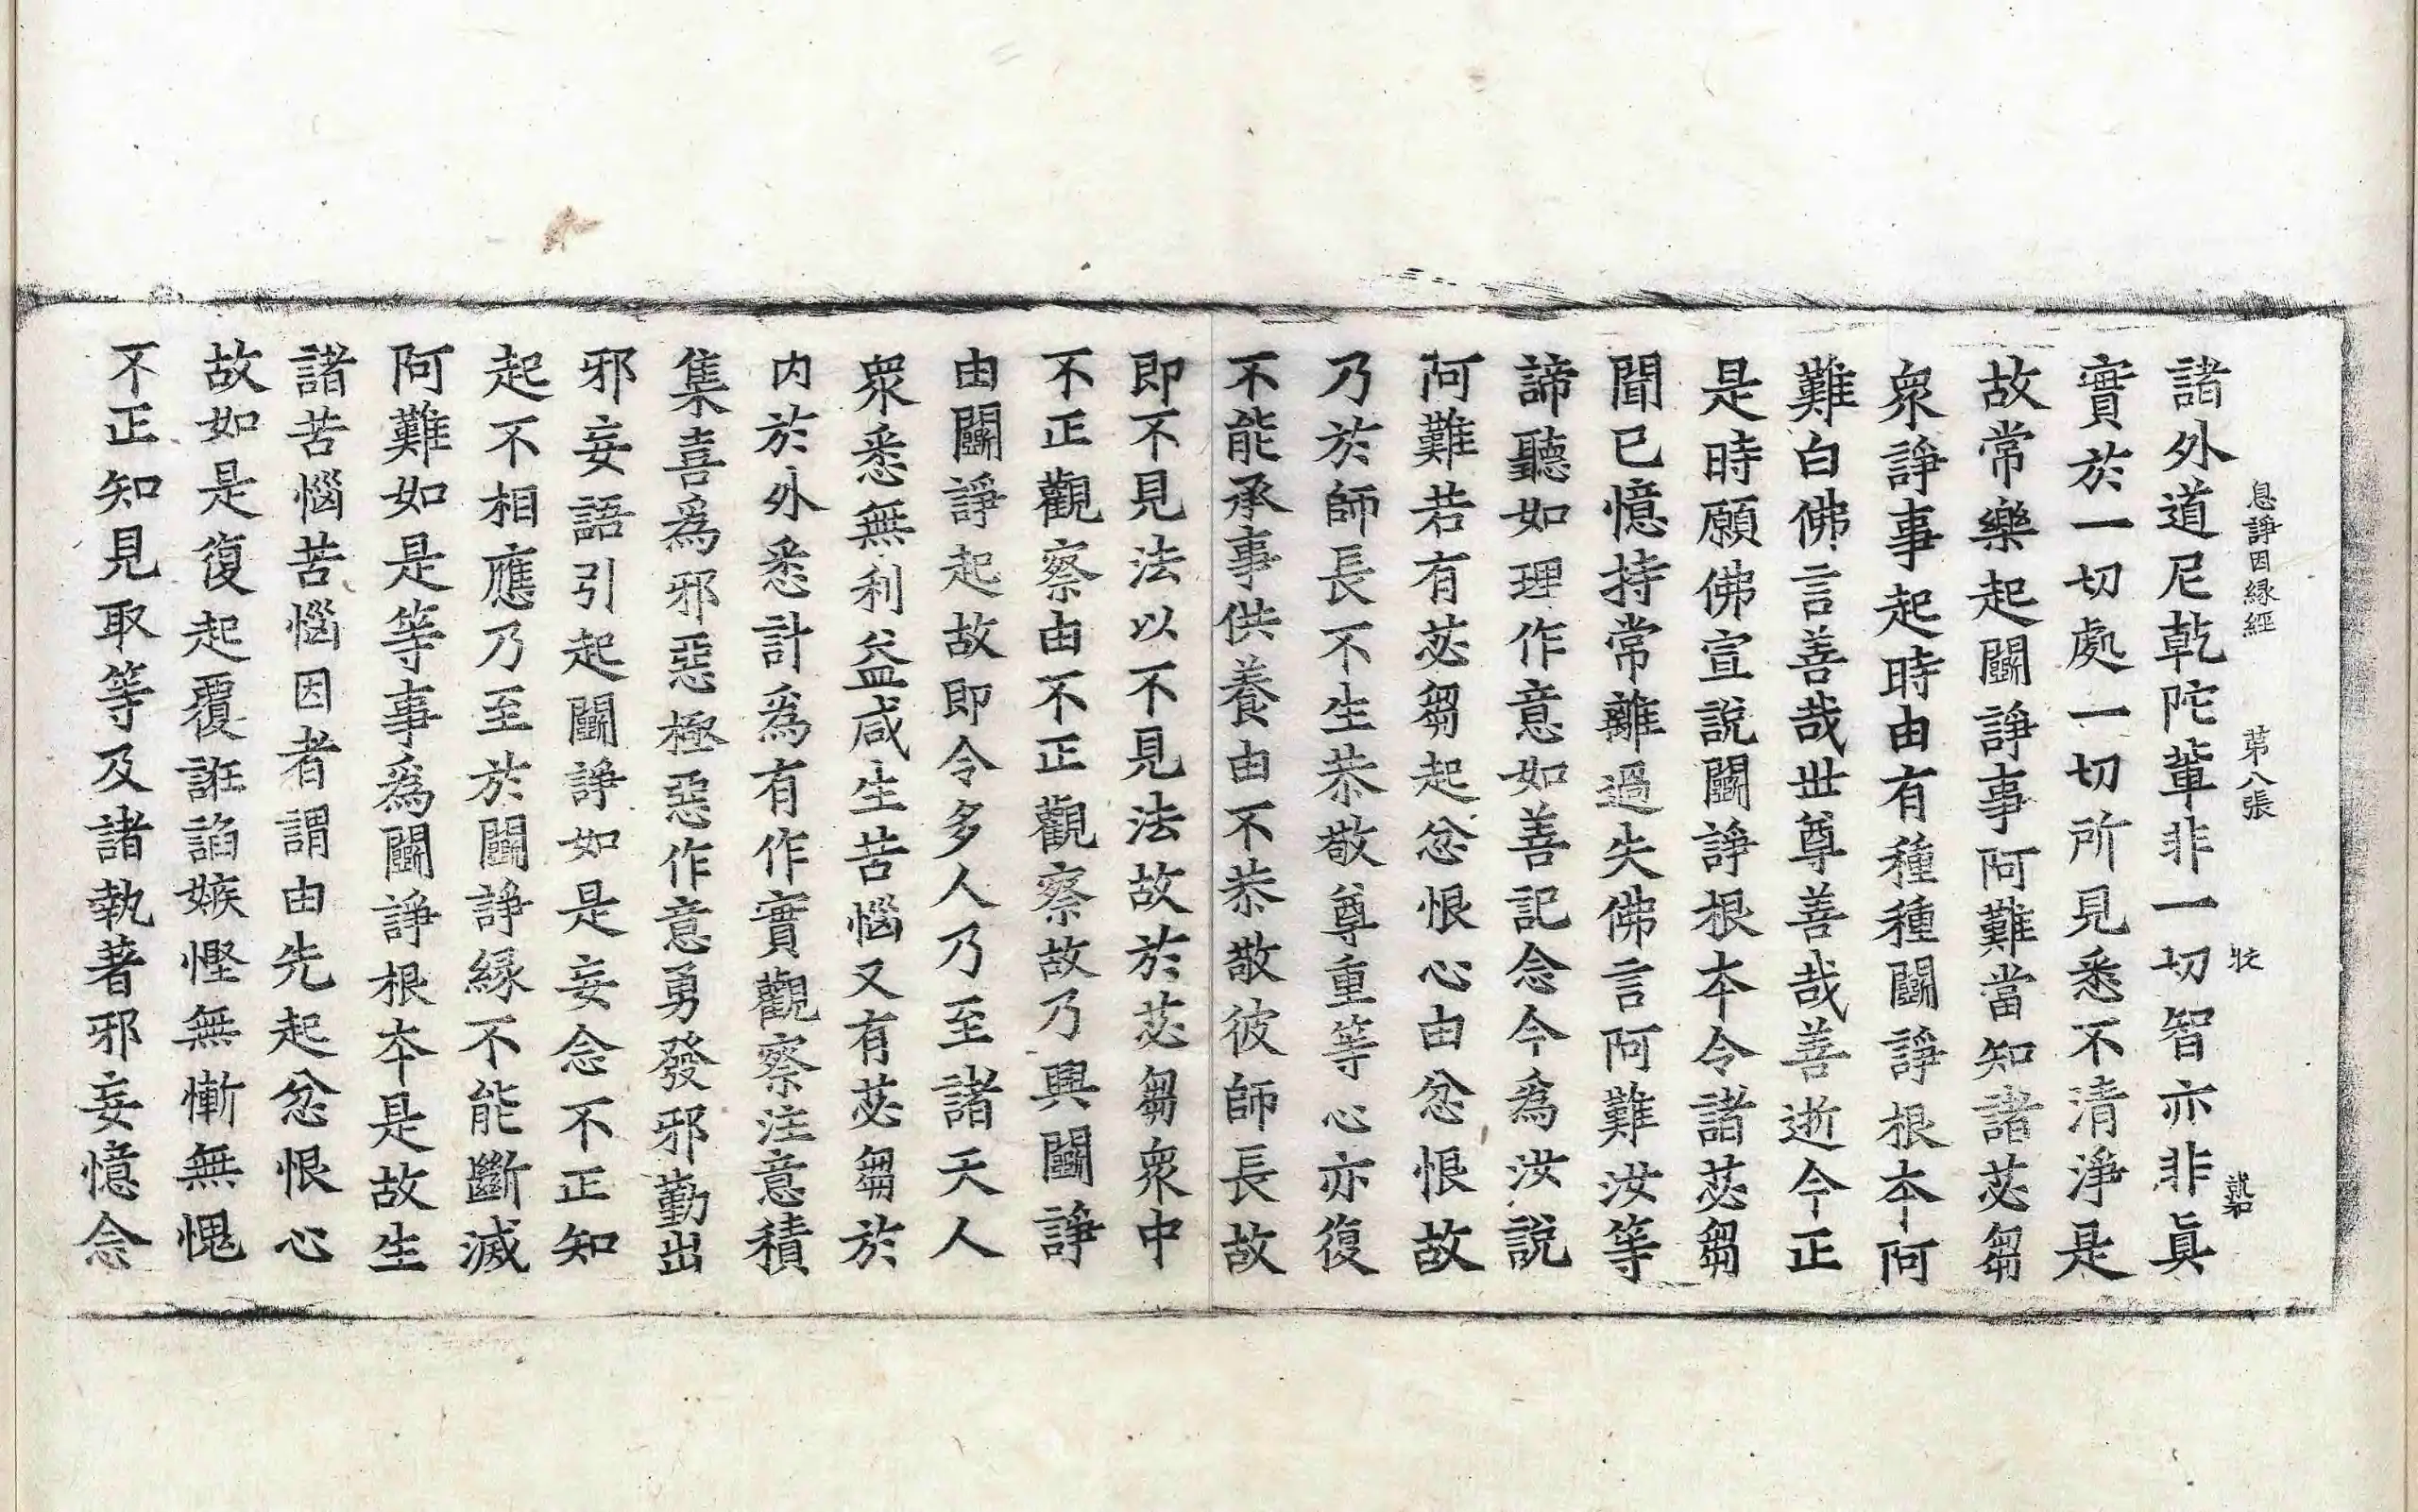 息諍因縁經　第八張　壯
諸外道尼乾陀輩非一切智亦非眞
實於一切處一切所見悉不清淨是
故常樂起鬬諍事阿難當知諸苾芻
衆諍事起時由有種種鬬諍根本阿
難白佛言善哉世尊善哉善逝今正
是時願佛宣說鬬諍根本令諸苾芻
聞已憶持常離過失佛言阿難汝等
諦聽如理作意如善記念今為汝說
阿難若有苾芻起忿恨心由忿恨故
乃於師長不生恭敬尊重等心亦復
不能承事供養由不恭敬彼師長故
即不見法以不見法故於苾芻衆中
不正觀察由不正觀察故乃興鬬諍
由鬬諍起故即令多人乃至諸天人
衆悉無利益咸生苦惱又有苾芻於
内於外悉計爲有作實觀察注意積
集喜爲邪惡極惡作意勇發邪勤出
邪妄語引起鬬諍如是妄念不正知
起不相應乃至於鬬諍縁不能斷滅
阿難如是等事爲鬬諍根本是故生
諸苦惱苦惱因者謂由先起忿恨心
故如是復起覆誑諂嫉慳無慚無愧
不正知見取等及諸執著邪妄憶念